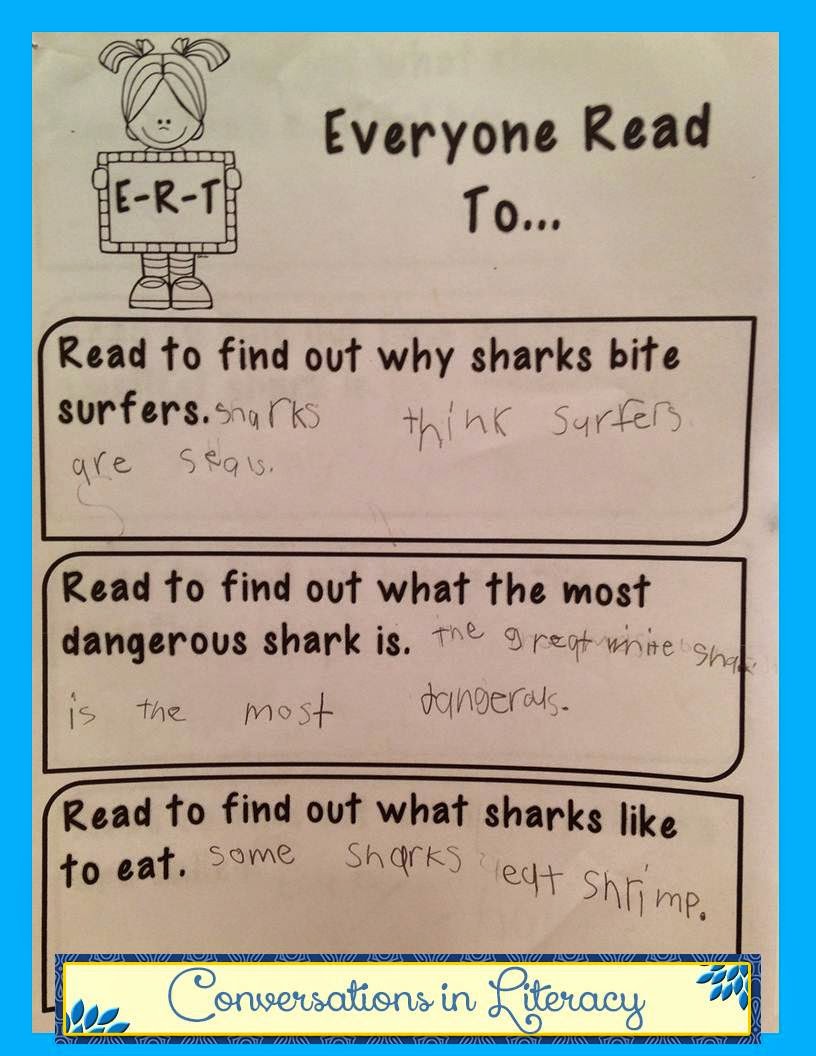 E-R-T
Everyone Read
To...
Read to find out why sharks bite
surfers. sharks think surfers
are seals.
Read to find out what the most
dangerous shark is. the great white shark
is the most dangerous.
Read to find out what sharks like
to eat. some sharks eat shrimp.
Conversations in Literacy